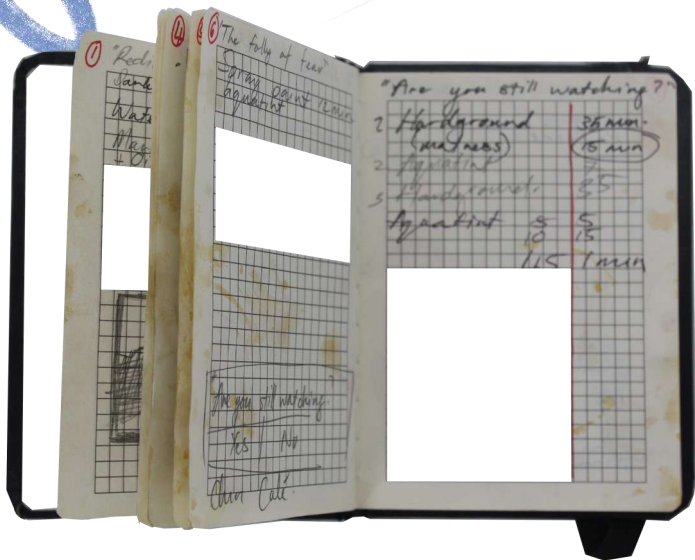 1
"Redu
Sank
Wate
Man
4
6
"The folly of fear"
Spray paint 12 mins
aquatint
Are you still watching.
Yes | No
Chin Calé.
"Are you still watching?"
2 Hardground 35 min.
(madness) 15 min
2 Aquatint
3 Hardground. 35
Aquatint 5 5
10 15
115 1 min